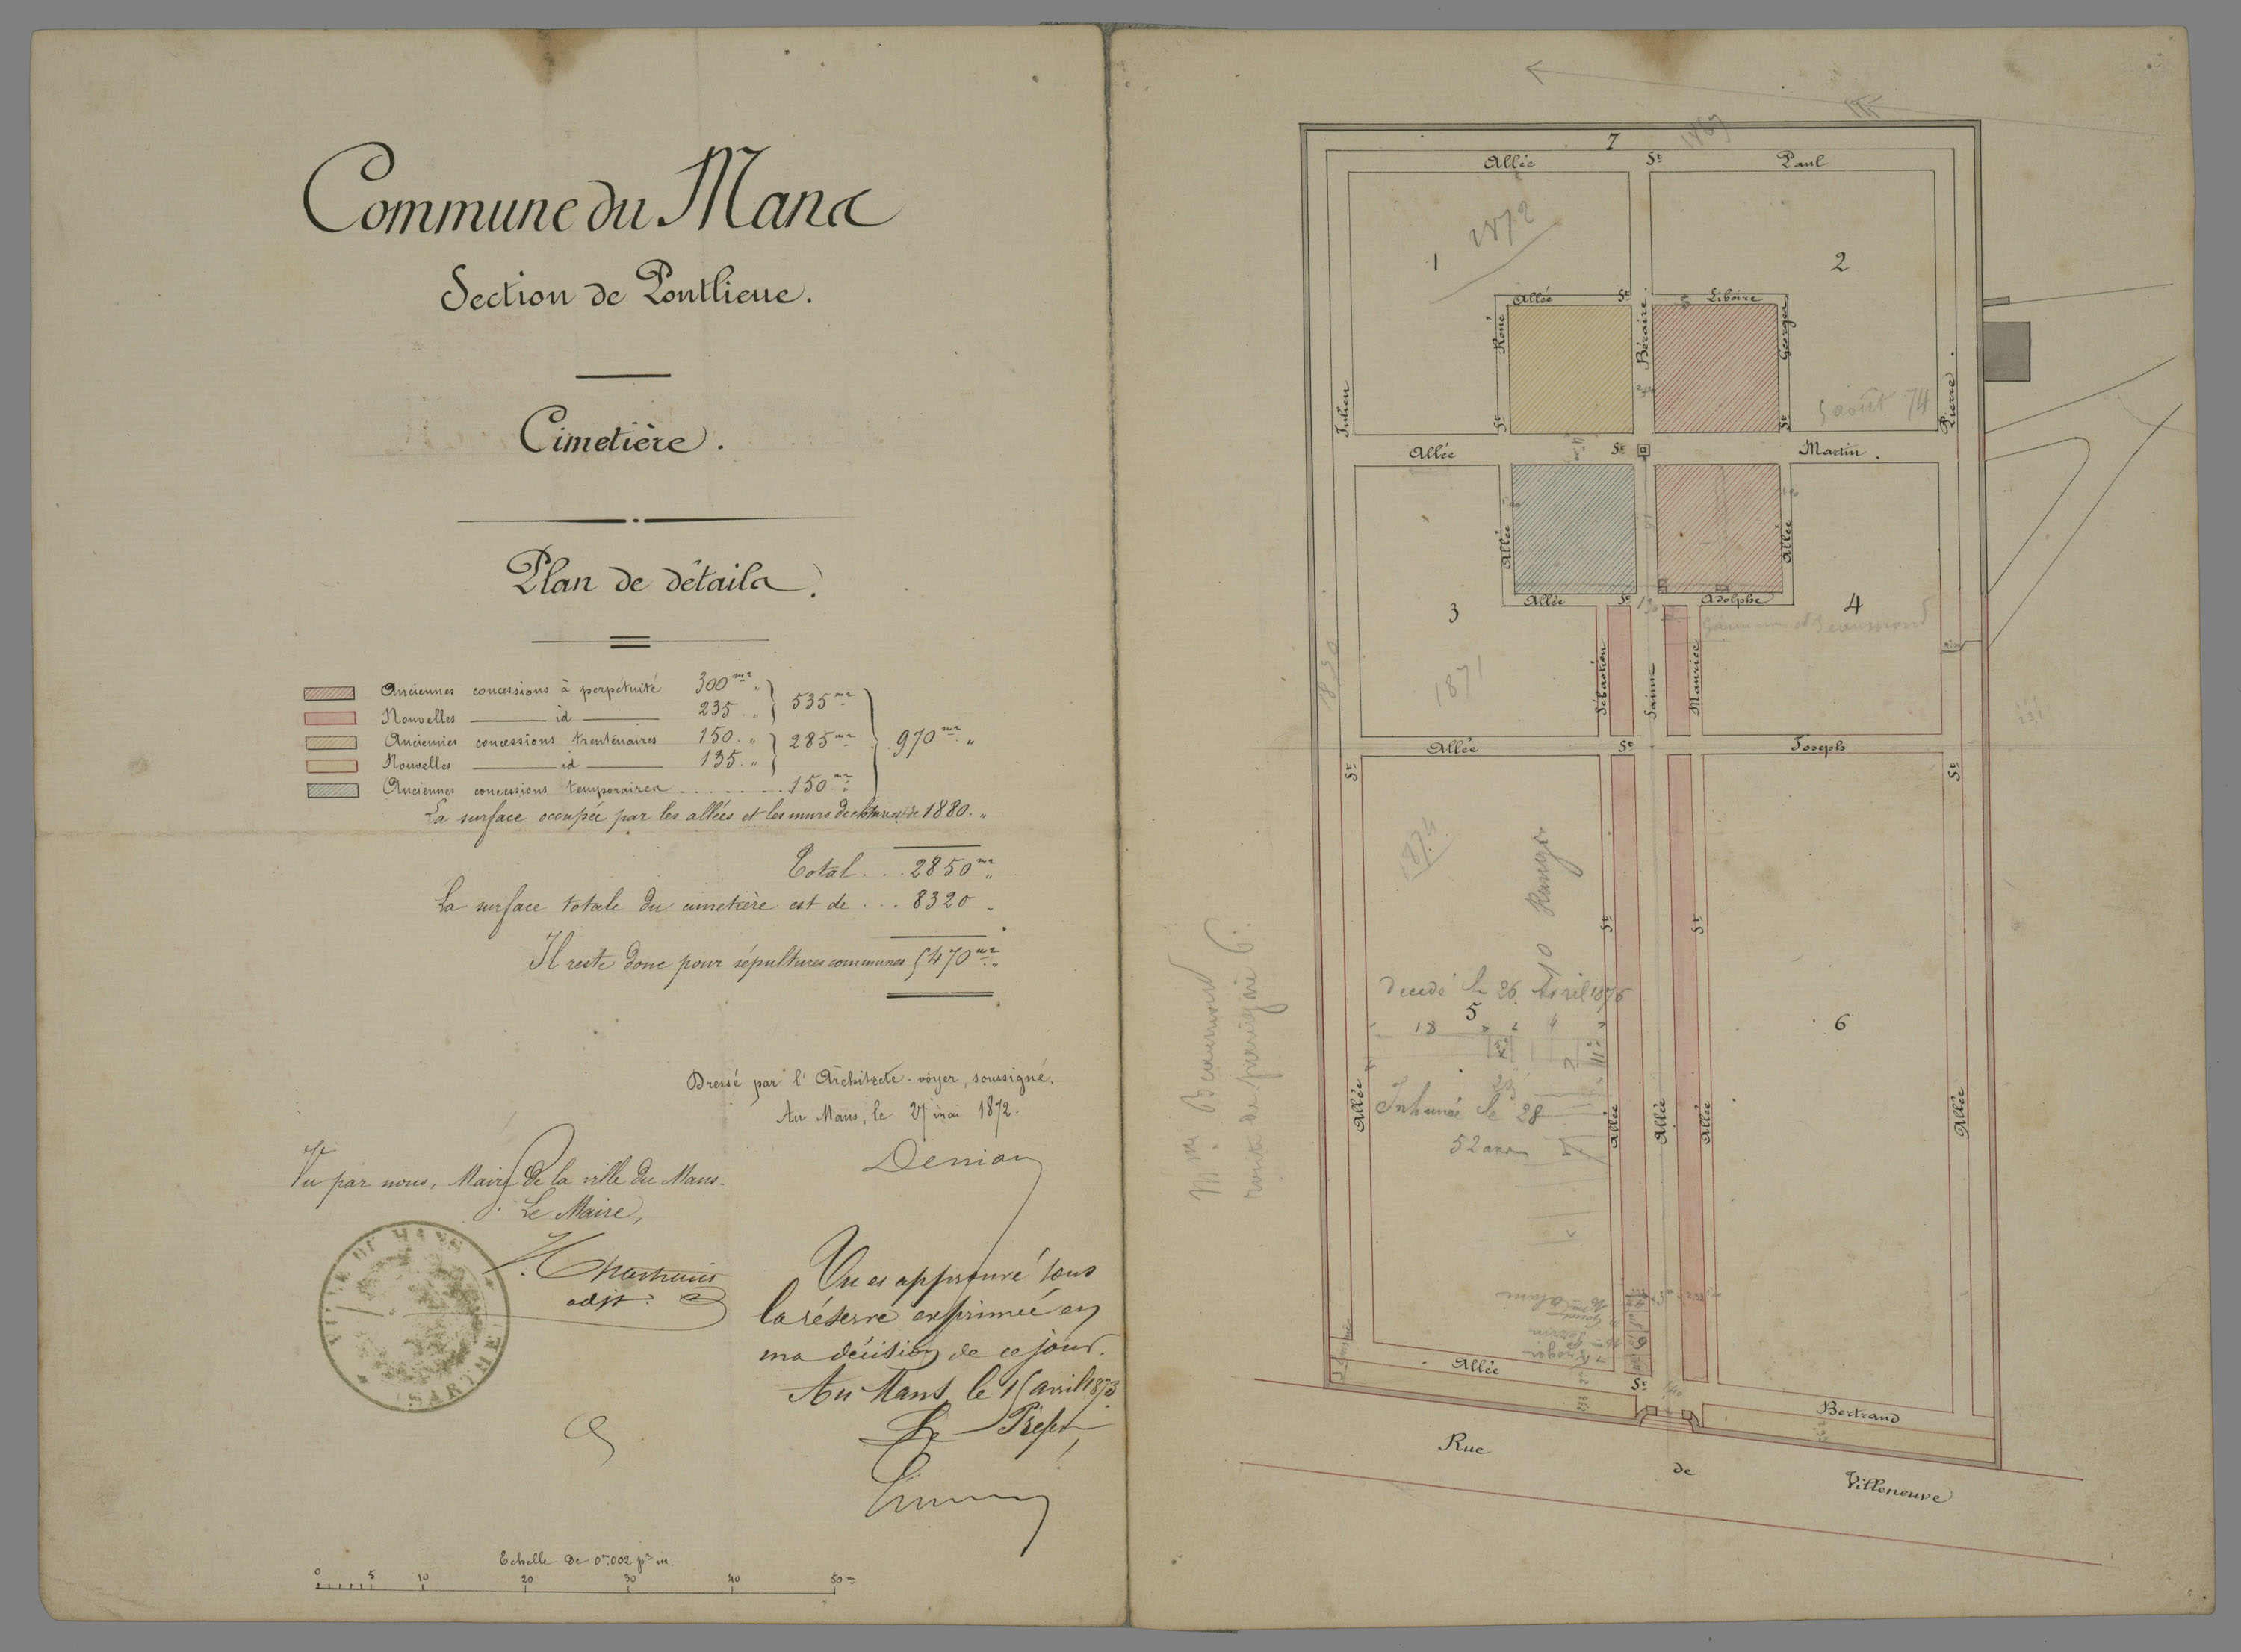 Commune du Mans
Section de Pontlieue.
Cimetière.
Plan de détails.
Anciennes concessions à perpétuité 300 m2 „
Nouvelles id 235 „ 535 m2
Anciennes concessions trentenaires 150. „
Nouvelles id 135. „ 285 m2 970 m2 „
Anciennes concessions temporaires ........ 150 m2
La surface occupée par les allées et les murs de clôture est de 1880. „
Total ... 2850 m2 „
La surface totale du cimetière est de ... 8320 „
Il reste donc pour sépultures communes 5470 m2 „
Dressé par l'Architecte-voyer, soussigné.
Au Mans, le 27 mai 1872.
Vu par nous, Maire de la ville du Mans.
Le Maire,
adjt.
VILLE DU MANS
(SARTHE)
Vu et approuvé sous
la réserve exprimée en
ma décision de ce jour.
Au Mans, le 15 avril 1873
Le Préfet
Echelle de 0m,002 pr m.
0 5 10 20 30 40 50 m
7
Allée St Paul
1872
1
2
Allée St Liboire
St René
Béraire
St Georges
Julien
5 août 74
Pierre.
Allée St Martin.
Allée
Allée
Allée St Adolphe
3
4
1871
Sébastien
Saint
Maurice
Allée St Joseph
St
St
1874
10 Rangs
St
St
décédé le 26 Avril 1876
5
18
6
Inhumée le 28
52 ans
Allée
Allée
Allée
Allée
Allée
Mme Beaumond
route de parigné 6.
Allée St Bertrand
Rue de Villeneuve